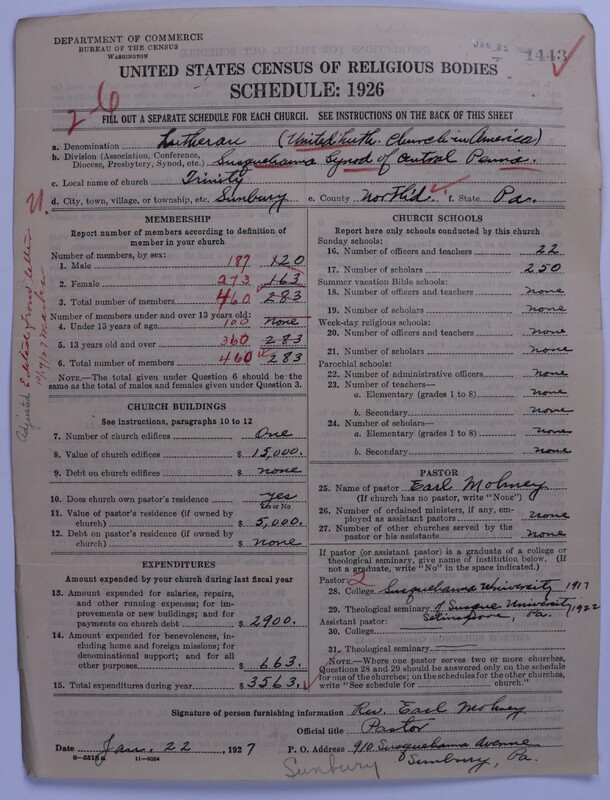 DEPARTMENT OF COMMERCE
BUREAU OF THE CENSUS
WASHINGTON
JAN 25
1443
UNITED STATES CENSUS OF RELIGIOUS BODIES
SCHEDULE: 1926
2-6
FILL OUT A SEPARATE SCHEDULE FOR EACH CHURCH. SEE INSTRUCTIONS ON THE BACK OF THIS SHEET
a. Denomination Lutheran (United Luth. Church in America)
b. Division (Association, Conference, Diocese, Presbytery, Synod, etc.) Susquehanna Synod of Central Penna.
c. Local name of church Trinity
d. City, town, village, or township, etc. Sunbury e. County Northld. f. State Pa.
MEMBERSHIP
Report number of members according to definition of
member in your church
Number of members, by sex:
1. Male 187 120
2. Female 273 163
3. Total number of members 460 283
Number of members under and over 13 years old:
4. Under 13 years of age 100 None
5. 13 years old and over 360 283
6. Total number of members 460 283
NOTE.—The total given under Question 6 should be
same as the total of males and females given under Question 3.
CHURCH BUILDINGS
See instructions, paragraphs 10 to 12
7. Number of church edifices One
8. Value of church edifices $ 15,000.
9. Debt on church edifices $ none
10. Does church own pastor's residence yes
Yes or No
11. Value of pastor's residence (if owned by
church) $ 5,000.
12. Debt on pastor's residence (if owned by
church) $ none
EXPENDITURES
Amount expended by your church during last fiscal year
13. Amount expended for salaries, repairs,
and other running expenses; for im-
provements or new buildings; and for
payments on church debt $ 2900.
14. Amount expended for benevolences,
including home and foreign missions; for
denominational support; and for all
other purposes $ 663.
15. Total expenditures during year $ 3563.
CHURCH SCHOOLS
Report here only schools conducted by this church
Sunday schools:
16. Number of officers and teachers 22
17. Number of scholars 250
Summer vacation Bible schools:
18. Number of officers and teachers none
19. Number of scholars none
Week-day religious schools:
20. Number of officers and teachers none
21. Number of scholars none
Parochial schools:
22. Number of administrative officers none
23. Number of teachers—
a. Elementary (grades 1 to 8) none
b. Secondary none
24. Number of scholars—
a. Elementary (grades 1 to 8) none
b. Secondary none
PASTOR
25. Name of pastor Earl Mohney
(If church has no pastor, write "None")
26. Number of ordained ministers, if any, em-
ployed as assistant pastors none
27. Number of other churches served by the
pastor or his assistants none
If pastor (or assistant pastor) is a graduate of a college or
theological seminary, give name of institution below. (If
not a graduate, write "No" in the space indicated.)
Pastor: 2
28. College Susquehanna University 1917
29. Theological seminary of Susque University 1922
Assistant pastor: Selinsgrove, Pa.
30. College
31. Theological seminary
NOTE.—Where one pastor serves two or more churches,
Questions 28 and 29 should be answered only on the schedule
for one of the churches; on the schedules for the other churches,
write "See schedule for church."
Signature of person furnishing information Rev. Earl Mohney
Official title Pastor
Date Jan. 22, 1927 P. O. Address 910 Susquehanna Avenue
Sunbury, Pa.
8-5518a 11-9084
Sunbury